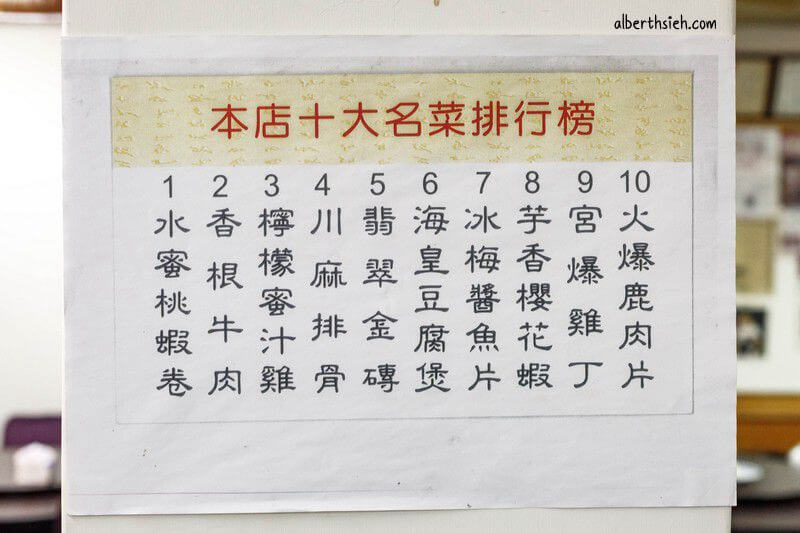 alberthsieh.com
本店十大名菜排行榜
1 水蜜桃蝦卷
2 香根牛肉
3 檸檬蜜汁雞
4 川麻排骨
5 翡翠金磚
6 海皇豆腐煲
7 冰梅醬魚片
8 芋香櫻花蝦
9 宮爆雞丁
10 火爆鹿肉片